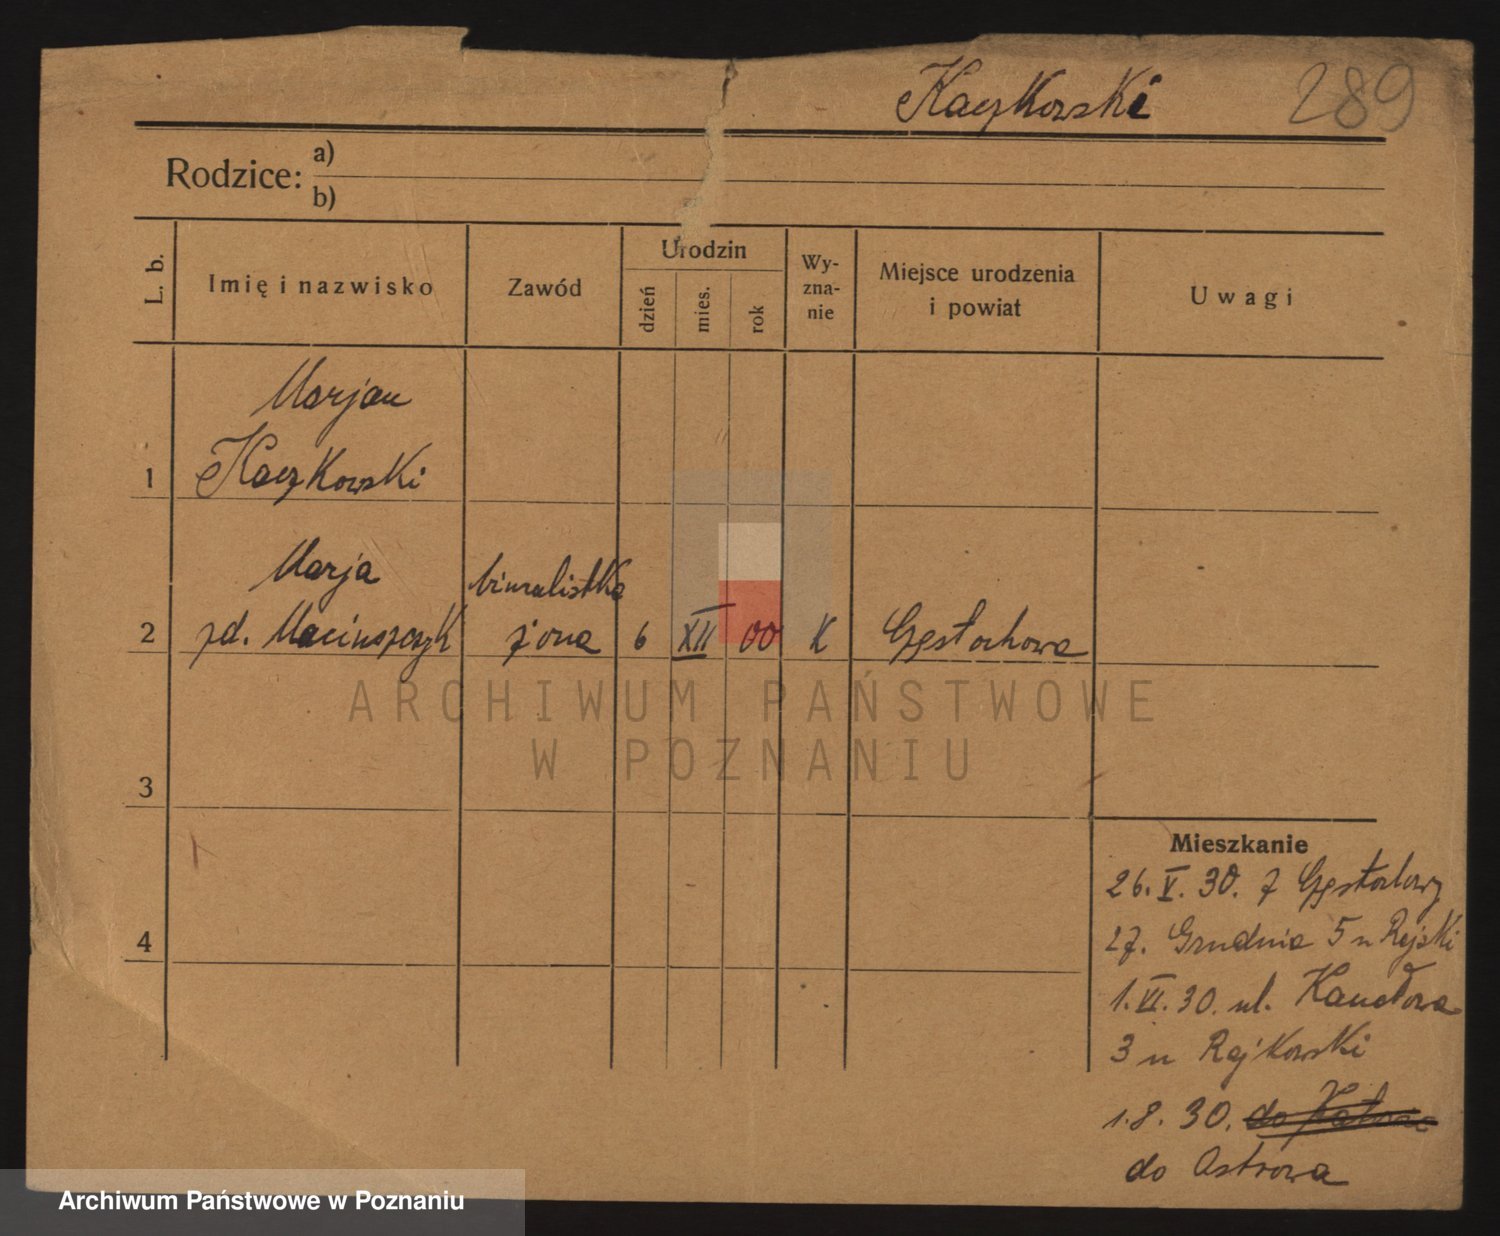 Kaczkowski 289
Rodzice: a)
b)
L. b.
Imię i nazwisko
Zawód
Urodzin
dzień
mies.
rok
Wy-
zna-
nie
Miejsce urodzenia
i powiat
Uwagi
Marjan
1 Kaczkowski
Marja biuralistka
2 zd. Macinszczyk żona 6 XII 00 K Częstochowa
ARCHIWUM PAŃSTWOWE
W POZNANIU
3
4
Mieszkanie
26. V. 30. z Częstochowy
27. Grudnia 5 u Rejski
1. VI. 30. ul. Kanałowa
3 u Rejkowski
1. 8. 30. do
do Ostrowa
Archiwum Państwowe w Poznaniu